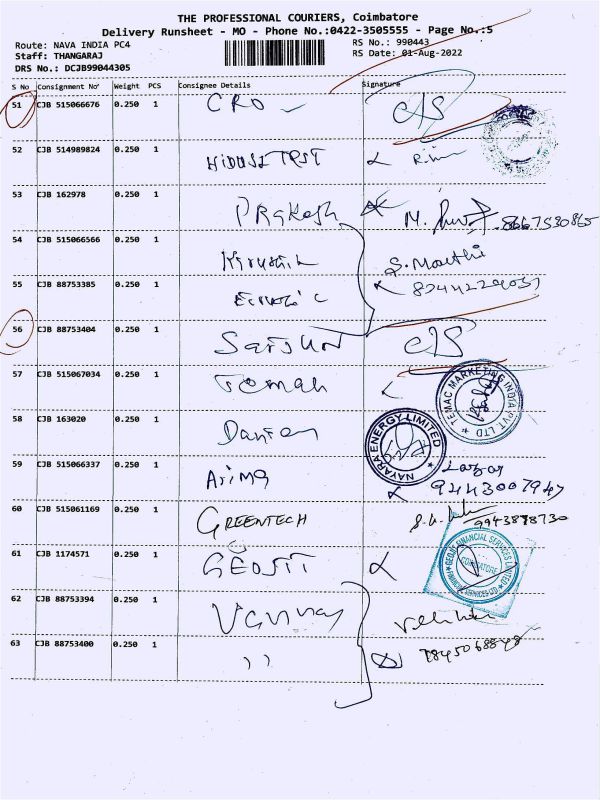 THE PROFESSIONAL COURIERS, Coimbatore
Delivery Runsheet - MO - Phone No.:0422-3505555 - Page No.:5
Route: NAVA INDIA PC4
RS No.: 990443
Staff: THANGARAJ
RS Date: 01-Aug-2022
DRS No.: DCJB99044305
S No Consignment No' Weight PCS Consignee Details Signature
51 CJB 515066676 0.250 1 CRO C/S
52 CJB 514989824 0.250 1
53 CJB 162978 0.250 1 PRakash M. 8667530865
54 CJB 515066566 0.250 1 S. Mouthi
55 CJB 88753385 0.250 1
56 CJB 88753404 0.250 1 C/S
57 CJB 515067034 0.250 1 Temah
TEMAC MARKETING INDIA PVT LTD
58 CJB 163020 0.250 1
NAYARA ENERGY LIMITED
59 CJB 515066337 0.250 1 9443007947
60 CJB 515061169 0.250 1 GREENTECH 9943898730
61 CJB 1174571 0.250 1 GEOJIT
GEOJIT FINANCIAL SERVICES LIMITED
COIMBATORE
62 CJB 88753394 0.250 1
63 CJB 88753400 0.250 1 ))